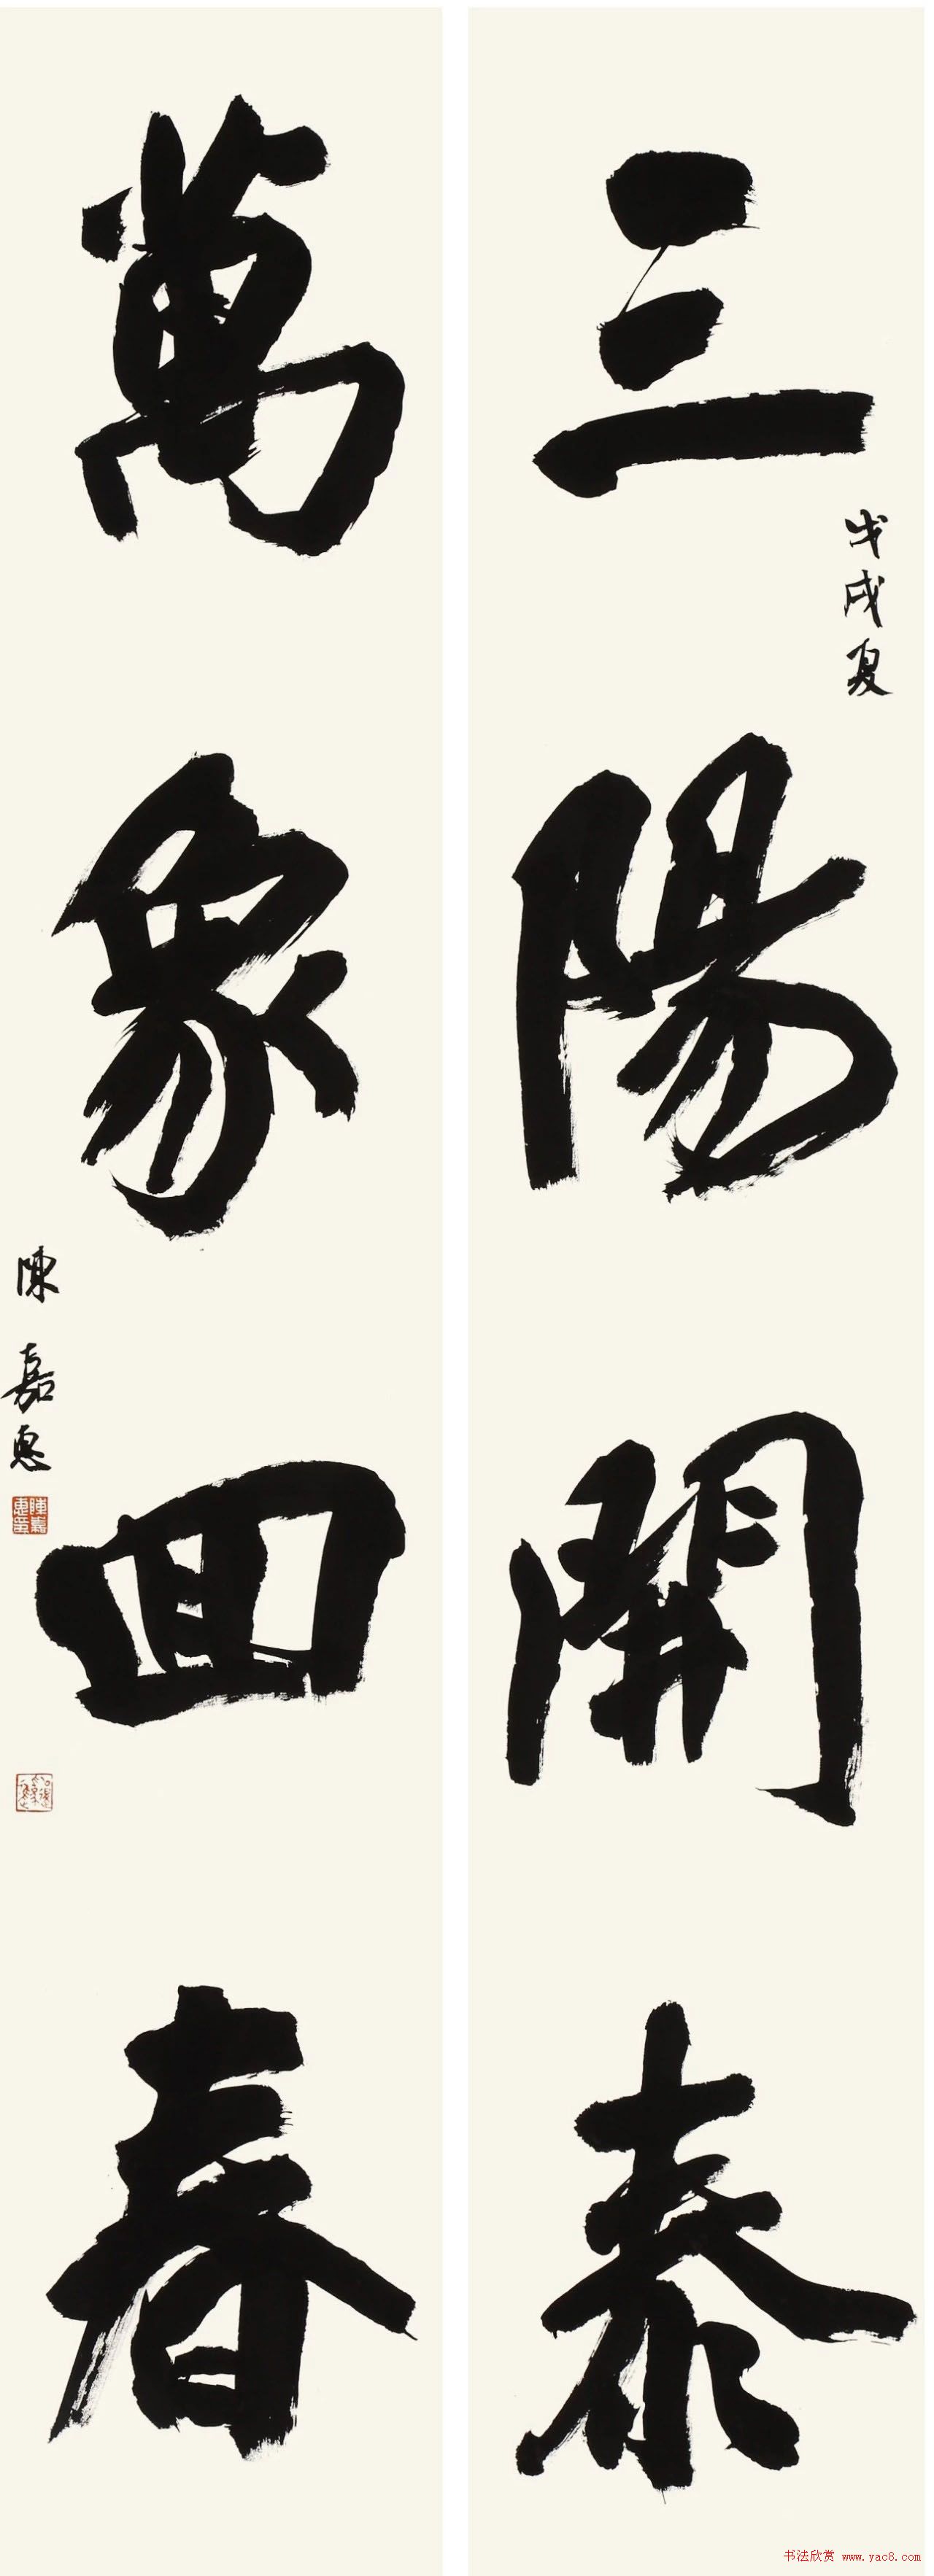 三陽開泰
戊戌夏
萬象回春
陳嘉惠
陳嘉惠印
书法欣赏 www.yac8.com